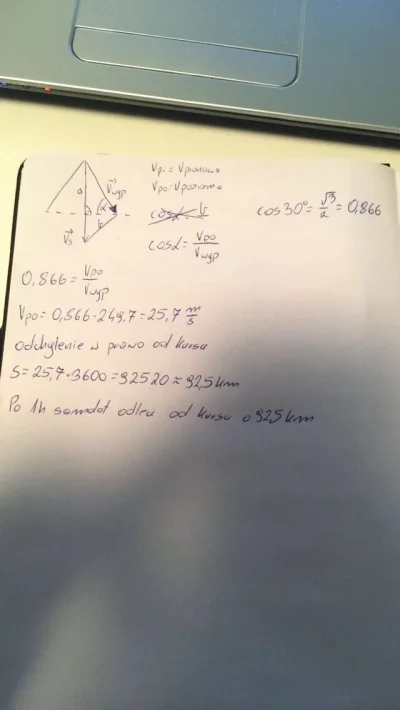 a
V⃗wyp
α
b
V⃗s
Vpi = Vpionowe
Vpo = Vpoziome
cosα = Vpo/Vwyp
cos30° = √3/2 = 0,866
0,866 = Vpo/Vwyp
Vpo = 0,866 · 249,7 = 25,7 m/s
odchylenie w prawo od kursu
S = 25,7 · 3600 = 92520 ≈ 92,5 km
Po 1h samolot odleci od kursu o 92,5 km